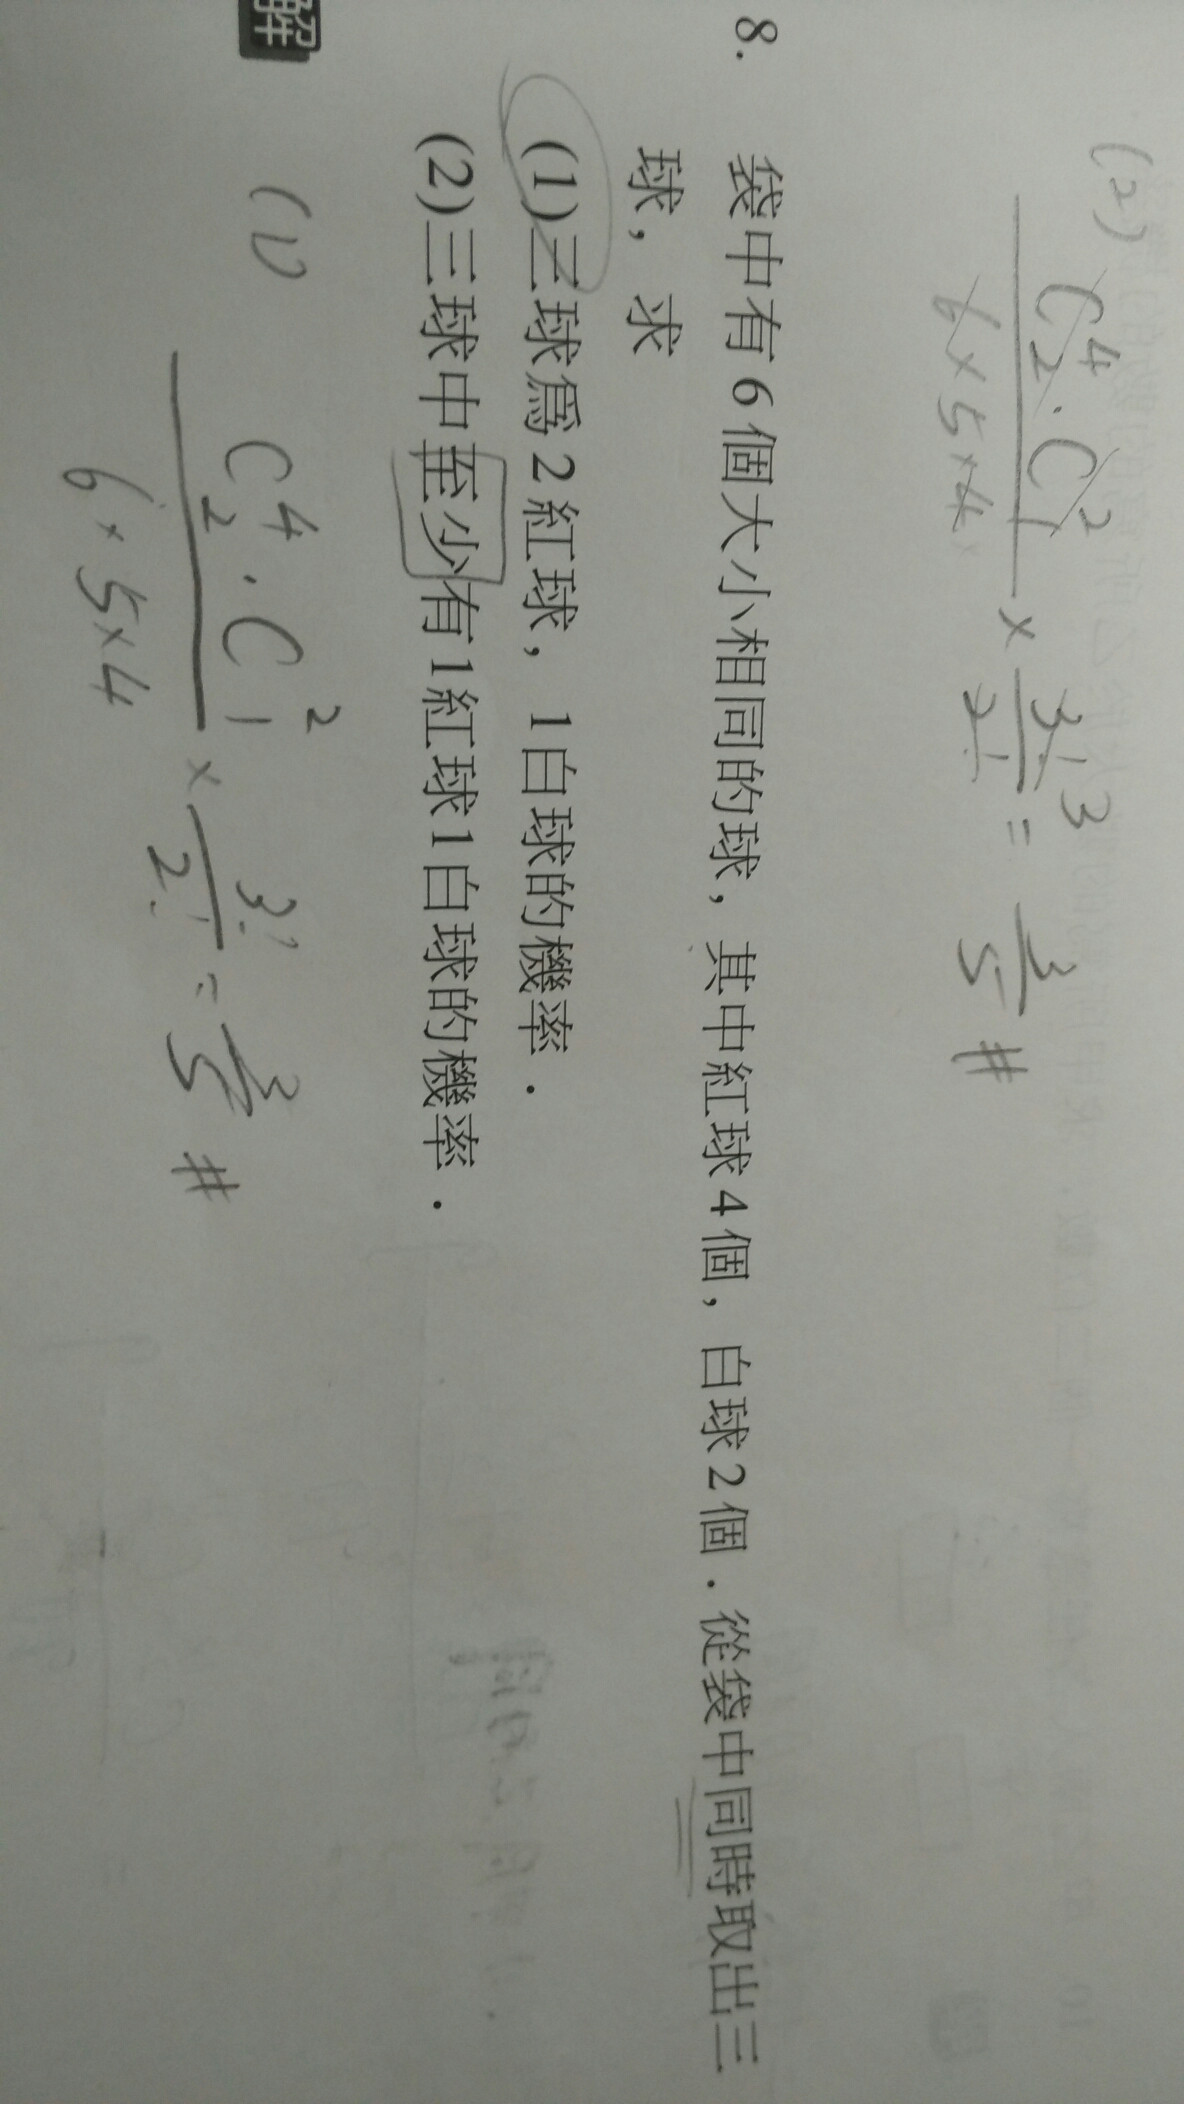 (2) C⁴₂ · C²₁ / 6×5×4 × 3! / 2! = 3/5 #
3
8. 袋中有6個大小相同的球，其中紅球4個，白球2個．從袋中同時取出三
球，求
(1)三球爲2紅球，1白球的機率．
(2)三球中至少有1紅球1白球的機率．
解
(1) C⁴₂ · C²₁ / 6×5×4 × 3! / 2! = 3/5 #